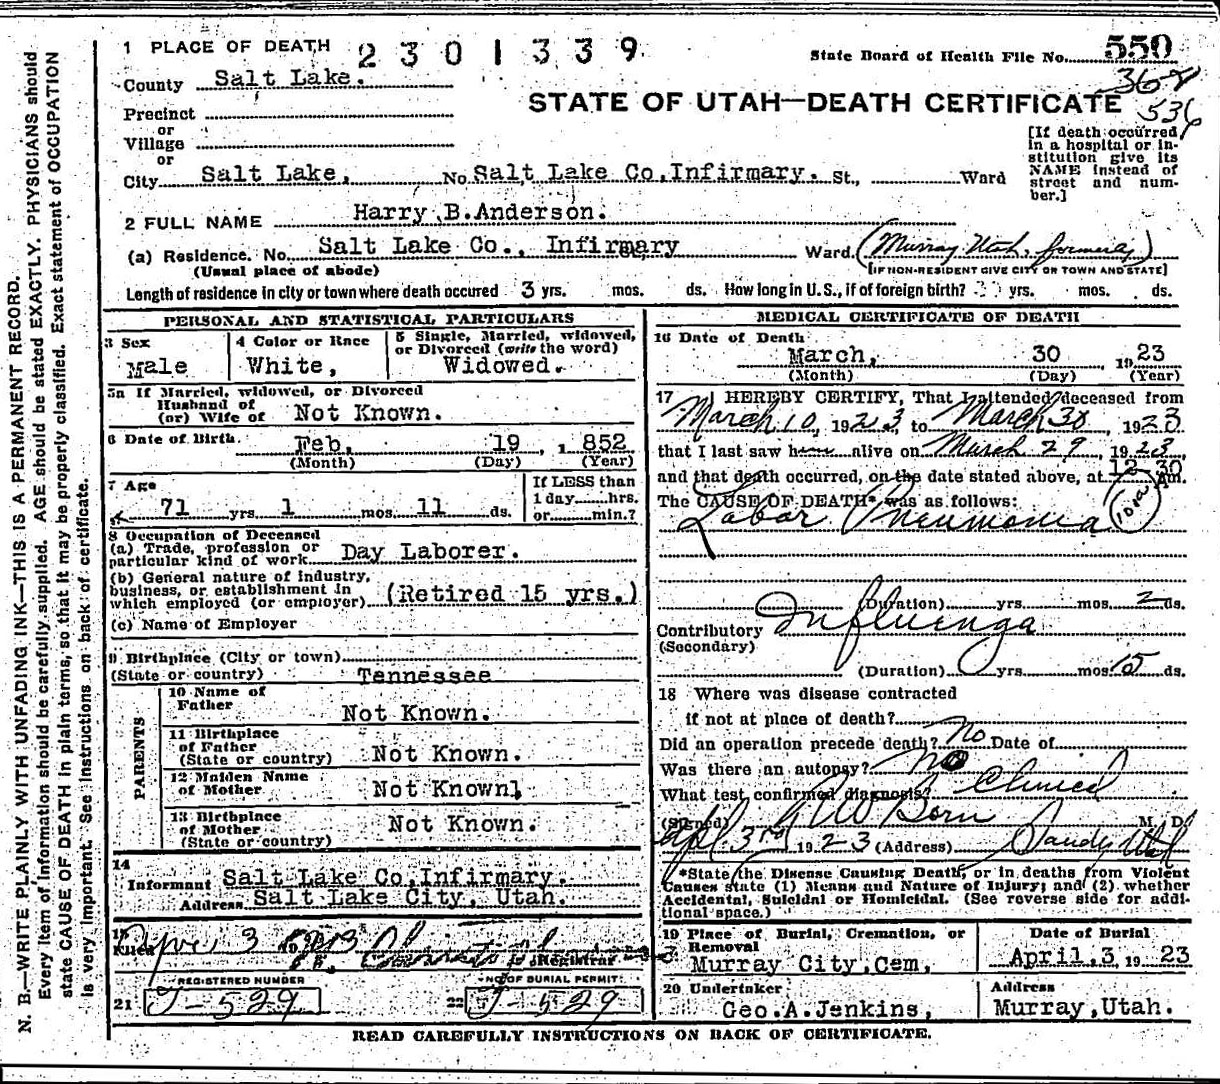 1 PLACE OF DEATH 2301339
State Board of Health File No. 550
County Salt Lake.
368
536
STATE OF UTAH—DEATH CERTIFICATE
Precinct
or
Village
or
City Salt Lake, No. Salt Lake Co, Infirmary. St., Ward
[If death occurred
in a hospital or in-
stitution give its
NAME instead of
street and num-
ber.]
2 FULL NAME Harry B. Anderson.
(a) Residence. No. Salt Lake Co., Infirmary Ward. (Murray Utah, formerly)
(Usual place of abode) [IF NON-RESIDENT GIVE CITY OR TOWN AND STATE]
Length of residence in city or town where death occured 3 yrs. mos. ds. How long in U.S., if of foreign birth? yrs. mos. ds.
PERSONAL AND STATISTICAL PARTICULARS
3 Sex Male
4 Color or Race White,
5 Single, Married, widowed,
or Divorced (write the word)
Widowed.
5a If Married, widowed, or Divorced
Husband of
(or) Wife of Not Known.
6 Date of Birth Feb, 19, 1852
(Month) (Day) (Year)
7 Age
71 yrs. 1 mos. 11 ds.
If LESS than
1 day hrs.
or min.?
8 Occupation of Deceased
(a) Trade, profession or
particular kind of work Day Laborer.
(b) General nature of industry,
business, or establishment in
which employed (or employer) (Retired 15 yrs.)
(c) Name of Employer
9 Birthplace (City or town)
(State or country) Tennessee
PARENTS
10 Name of
Father Not Known.
11 Birthplace
of Father
(State or country) Not Known.
12 Maiden Name
of Mother Not Known,
13 Birthplace
of Mother
(State or country) Not Known.
14
Informant Salt Lake Co, Infirmary.
Address Salt Lake City, Utah.
15
Filed 3
Registrar
REGISTERED NUMBER
21 J-529
NO OF BURIAL PERMIT
22 J-529
MEDICAL CERTIFICATE OF DEATH
16 Date of Death
March, 30 1923
(Month) (Day) (Year)
17 I HEREBY CERTIFY, That I attended deceased from
March 10, 1923 to March 30, 1923
that I last saw him alive on March 29, 1923
and that death occurred, on the date stated above, at 12 30 am.
The CAUSE OF DEATH* was as follows:
Lobar Pneumonia
(Duration) yrs. mos. 2 ds.
Contributory Influenza
(Secondary)
(Duration) yrs. mos. 15 ds.
18 Where was disease contracted
if not at place of death?
Did an operation precede death? No Date of
Was there an autopsy? No
What test confirmed diagnosis? Clinical
(Signed) Born M. D.
Apl. 3rd 1923 (Address) Sandy Utah
*State the Disease Causing Death, or in deaths from Violent
Causes state (1) Means and Nature of Injury; and (2) whether
Accidental, Suicidal or Homicidal. (See reverse side for addi-
tional space.)
19 Place of Burial, Cremation, or
Removal
Murray City, Cem,
Date of Burial
April, 3, 1923
20 Undertaker
Geo. A. Jenkins,
Address
Murray, Utah.
READ CAREFULLY INSTRUCTIONS ON BACK OF CERTIFICATE.
N. B.—WRITE PLAINLY WITH UNFADING INK—THIS IS A PERMANENT RECORD.
Every item of information should be carefully supplied. AGE should be stated EXACTLY. PHYSICIANS should
state CAUSE OF DEATH in plain terms, so that it may be properly classified. Exact statement of OCCUPATION
is very important. See instructions on back of certificate.